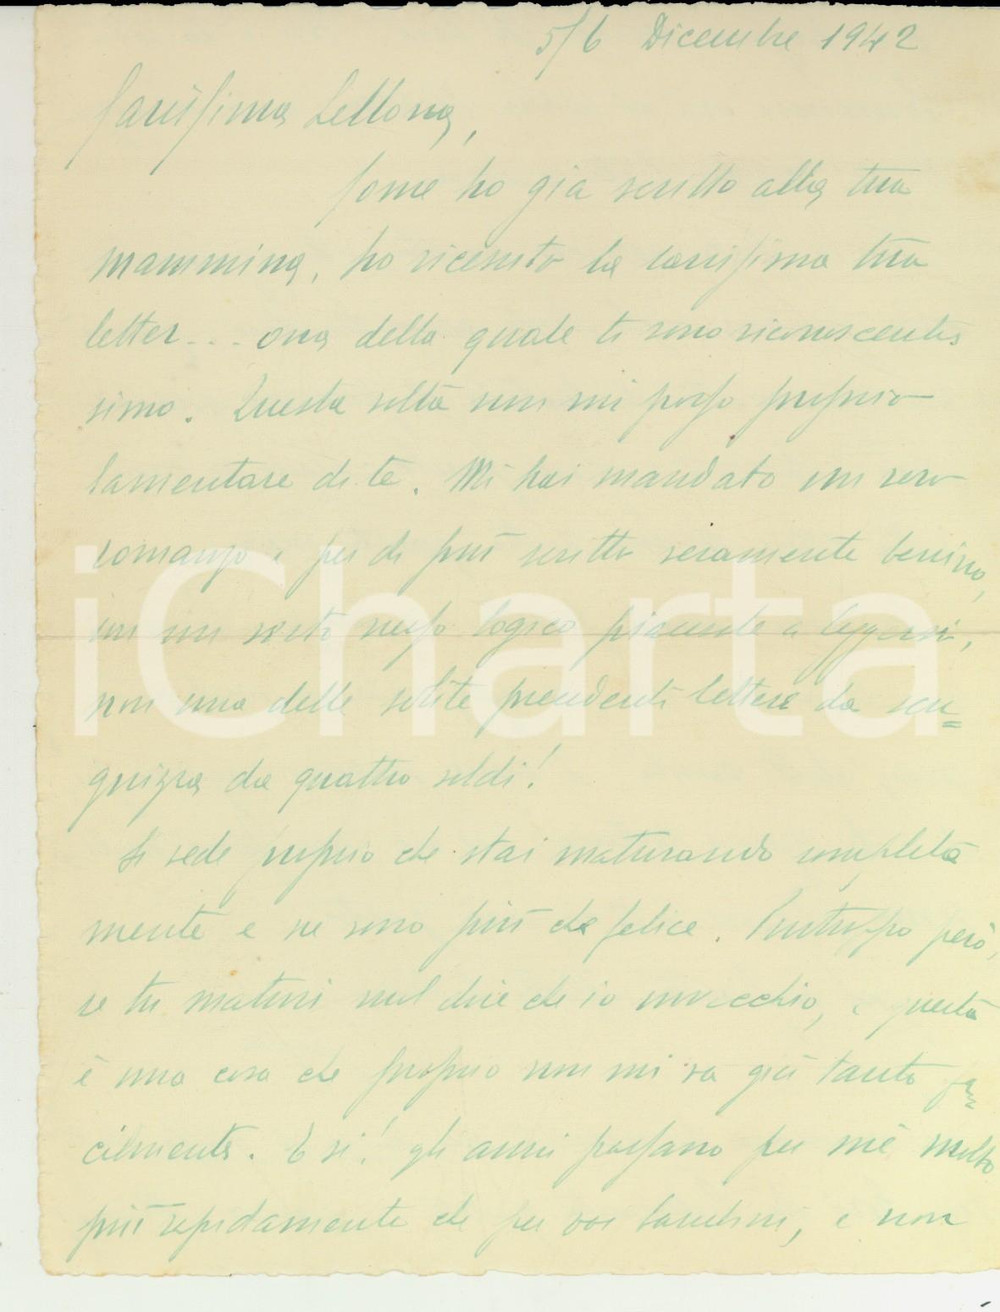 5/6 Dicembre 1942
Carissima Lellona,
Come ho già scritto alla tua
mammina, ho ricevuto la carissima tua
letter... ona della quale ti sono riconoscentis
simo. Questa volta non mi posso proprio
lamentare di te. Mi hai mandato un vero
romanzo e per di più scritto veramente benino,
con un certo nesso logico, piacevole a leggersi,
non una delle solite precedenti lettere da scu=
gnizza da quattro soldi!
Si vede proprio che stai maturando completa
mente e ne sono più che felice. Purtroppo però,
se tu maturi vuol dire che io invecchio, e questa
è una cosa che proprio non mi va giù tanto fa=
cilmente. E sì! gli anni passano per me molto
più rapidamente che per voi bambini, e non
iCharta